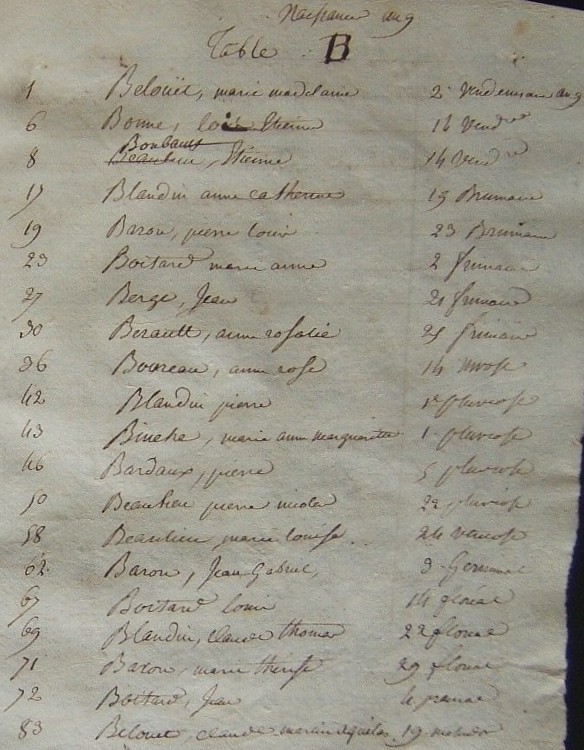 Naissance an 9
Table B
1 Belouët, marie madelaine 2 Vendemiaire an 9
6 Bonne, Etienne 16 Vend re
Bonbault
8 Beaulieu, Etienne 14 Vend re
17 Blandin anne catherine 19 Brumaire
19 Baron, pierre louis 23 Brumaire
23 Boitard marie anne 2 frimaire
27 Berge, Jean 21 frimaire
30 Berault, anne rosalie 25 frimaire
36 Boureau, anne rose 14 nivose
42 Blandin pierre 1er pluviose
43 Binetre, marie anne margueritte 1er pluviose
46 Bardaux, pierre 5 pluviose
50 Beaulieu pierre nicolas 22 pluviose
58 Beaulieu marie louise 24 ventose
62 Baron, Jean Gabriel, 3 Germinal
67 Boitard louis 14 floreal
69 Blandin, claude thomas 22 floreal
71 Baron, marie therese 29 floreal
72 Boitard, Jean 4 prairial
83 Belouet, claude martin 19 messidor